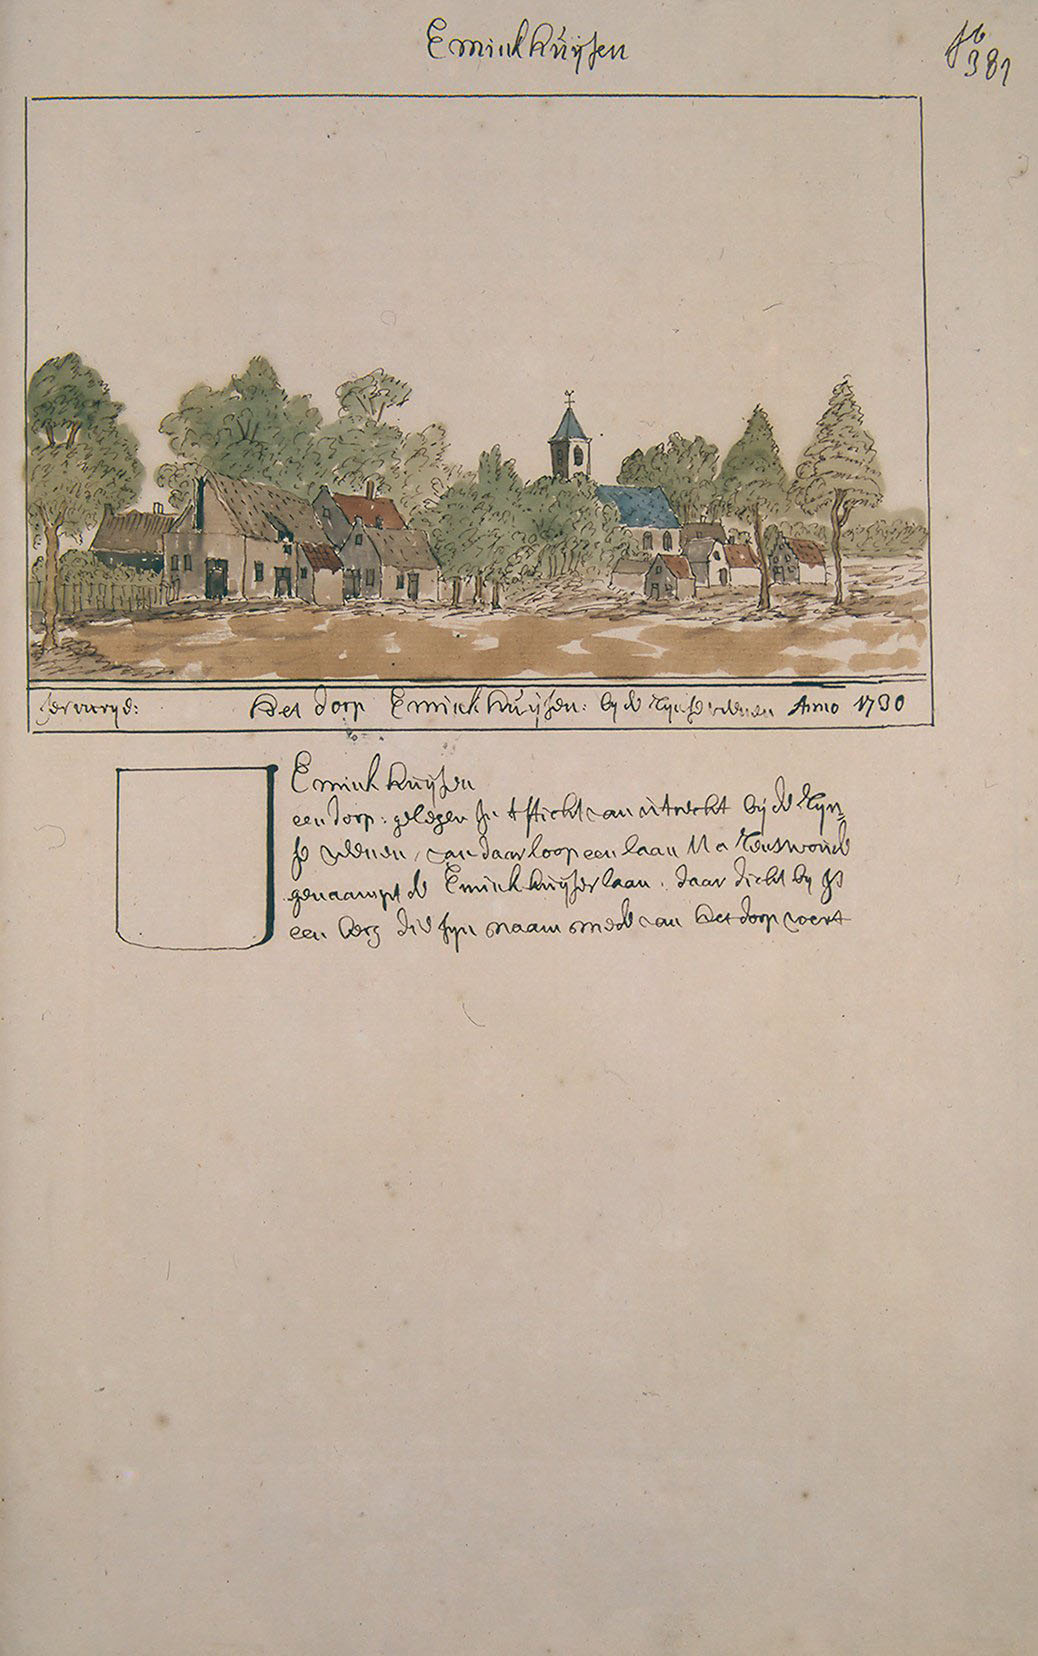 Eminkhuÿsen
fo 381
Het dorp Eminkhuÿsen: by de Rijnse veenen Anno 1730
Eminkhuÿsen
een dorp: gelegen in t sticht van uitrecht bij de Ryn-
se veenen, van daar loop een laan na Renswoude
genaampt de Eminkhuÿser laan. daar dicht by is
een berg die syn naam mede van het dorp voert